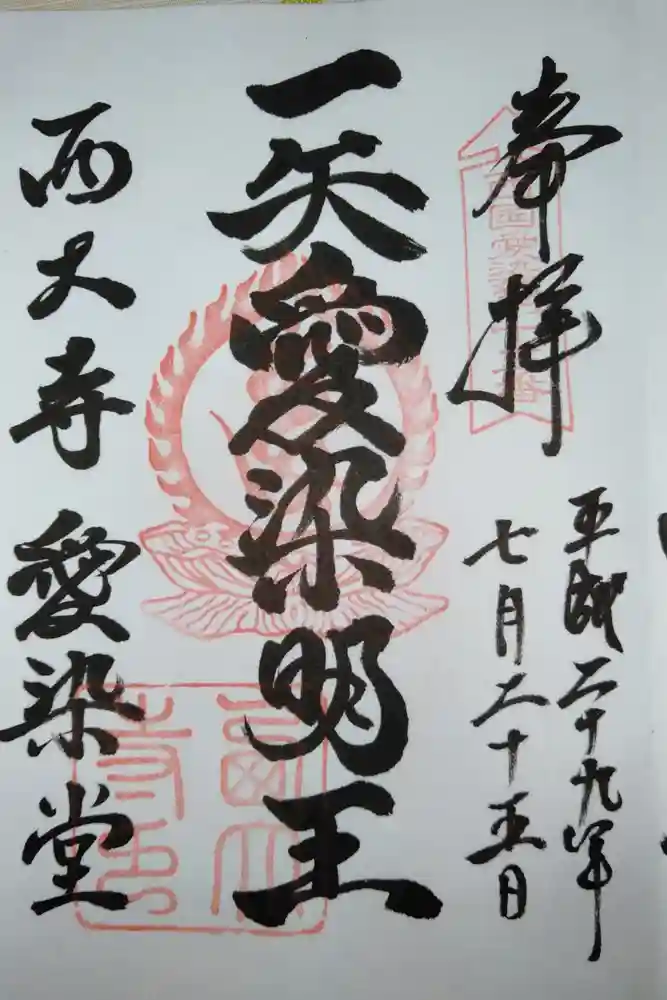 奉拝
平成二十九年
七月二十五日
一矢愛染明王
西大寺愛染堂